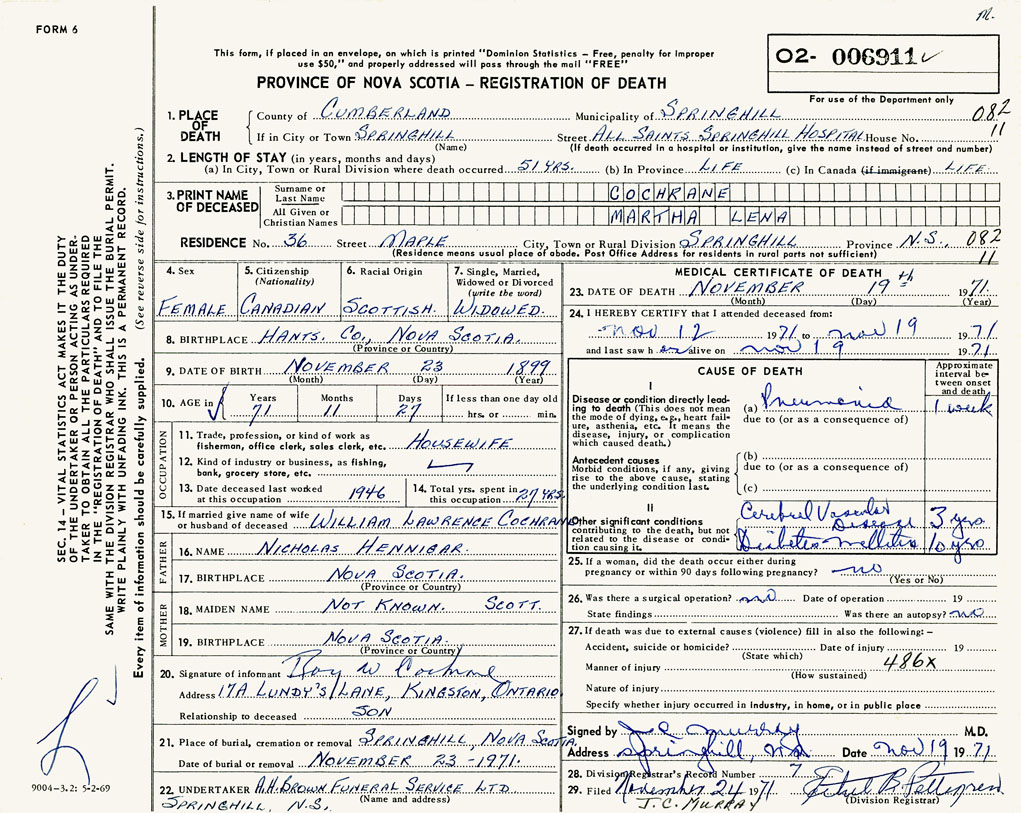 M.
FORM 6
This form, if placed in an envelope, on which is printed "Dominion Statistics – Free, penalty for improper
use $50," and properly addressed will pass through the mail "FREE"
PROVINCE OF NOVA SCOTIA – REGISTRATION OF DEATH
02- 006911 ✓
For use of the Department only
SEC. 14 – VITAL STATISTICS ACT MAKES IT THE DUTY
OF THE UNDERTAKER OR PERSON ACTING AS UNDER-
TAKER TO OBTAIN ALL THE PARTICULARS REQUIRED
IN THE "REGISTRATION OF DEATH" AND TO FILE THE
SAME WITH THE DIVISION REGISTRAR WHO SHALL ISSUE THE BURIAL PERMIT.
WRITE PLAINLY WITH UNFADING INK. THIS IS A PERMANENT RECORD.
Every item of information should be carefully supplied. (See reverse side for instructions.)
1. PLACE OF DEATH County of CUMBERLAND Municipality of SPRINGHILL 082
If in City or Town SPRINGHILL Street ALL SAINTS SPRINGHILL HOSPITAL House No. 11
(Name) (If death occurred in a hospital or institution, give the name instead of street and number)
2. LENGTH OF STAY (in years, months and days)
(a) In City, Town or Rural Division where death occurred 51 YRS. (b) In Province LIFE (c) In Canada (if immigrant) LIFE
3. PRINT NAME OF DECEASED Surname or Last Name COCHRANE
All Given or Christian Names MARTHA LENA
RESIDENCE No. 36 Street MAPLE City, Town or Rural Division SPRINGHILL Province N.S., 082
(Residence means usual place of abode. Post Office Address for residents in rural parts not sufficient) 11
4. Sex 5. Citizenship (Nationality) 6. Racial Origin 7. Single, Married, Widowed or Divorced (write the word)
FEMALE CANADIAN SCOTTISH. WIDOWED.
8. BIRTHPLACE HANTS. CO., NOVA SCOTIA.
(Province or Country)
9. DATE OF BIRTH NOVEMBER 23 1899
(Month) (Day) (Year)
10. AGE in Years Months Days If less than one day old
71 11 27 hrs. or min.
OCCUPATION
11. Trade, profession, or kind of work as
fisherman, office clerk, sales clerk, etc. HOUSEWIFE
12. Kind of industry or business, as fishing,
bank, grocery store, etc.
13. Date deceased last worked at this occupation 1946 14. Total yrs. spent in this occupation 27 YRS.
15. If married give name of wife
or husband of deceased WILLIAM LAWRENCE COCHRANE
FATHER
16. NAME NICHOLAS HENNIGAR.
17. BIRTHPLACE NOVA SCOTIA.
(Province or Country)
MOTHER
18. MAIDEN NAME NOT KNOWN. SCOTT.
19. BIRTHPLACE NOVA SCOTIA.
(Province or Country)
20. Signature of informant Roy W Cochrane
Address 17A LUNDY'S LANE, KINGSTON, ONTARIO
Relationship to deceased SON
21. Place of burial, cremation or removal SPRINGHILL, NOVA SCOTIA,
Date of burial or removal NOVEMBER 23 - 1971.
22. UNDERTAKER A.H. BROWN FUNERAL SERVICE LTD
(Name and address)
SPRINGHILL, N.S.
9004-3.2: 5-2-69
MEDICAL CERTIFICATE OF DEATH
23. DATE OF DEATH NOVEMBER 19th 1971.
(Month) (Day) (Year)
24. I HEREBY CERTIFY that I attended deceased from:
Nov 12 1971 to Nov 19 1971
and last saw h er alive on Nov 19 1971
CAUSE OF DEATH
Approximate interval between onset and death
I
Disease or condition directly leading to death (This does not mean the mode of dying, e.g., heart failure, asthenia, etc. It means the disease, injury, or complication which caused death.)
(a) Pneumonia 1 week
due to (or as a consequence of)
Antecedent causes
Morbid conditions, if any, giving rise to the above cause, stating the underlying condition last.
(b)
due to (or as a consequence of)
(c)
II
Other significant conditions
contributing to the death, but not related to the disease or condition causing it.
Cerebral Vascular Disease 3 yrs
Diabetes Mellitis 10 yrs
25. If a woman, did the death occur either during
pregnancy or within 90 days following pregnancy? no
(Yes or No)
26. Was there a surgical operation? no Date of operation 19
State findings Was there an autopsy? no
27. If death was due to external causes (violence) fill in also the following: –
Accident, suicide or homicide? Date of injury 19
(State which)
Manner of injury 486X
(How sustained)
Nature of injury
Specify whether injury occurred in industry, in home, or in public place
Signed by J C Murray M.D.
Address Springhill, NS Date Nov 19 1971
28. Division Registrar's Record Number 7
29. Filed November 24 1971 Ethel B. Pettigrew
(Division Registrar)
J.C. MURRAY